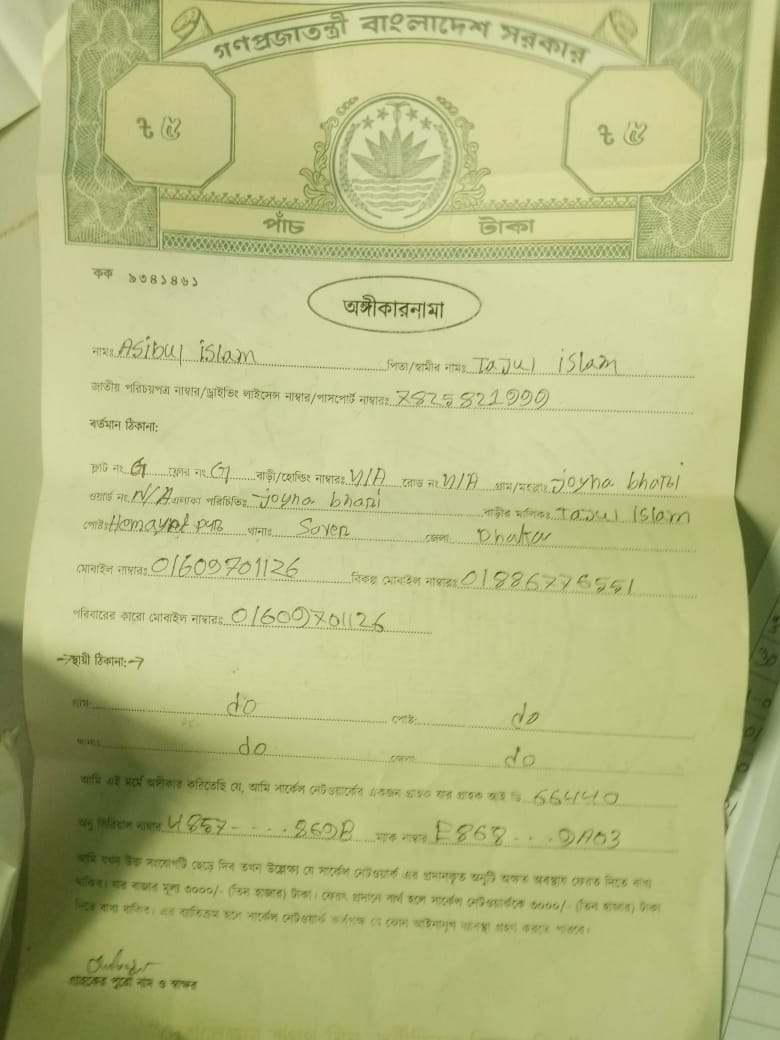 গণপ্রজাতন্ত্রী বাংলাদেশ সরকার
৳ ৫ ৳ ৫
পাঁচ টাকা
কক ৯৩৪১৪৬১
অঙ্গীকারনামা
নামঃ Asibul islam পিতা/স্বামীর নামঃ Tajul islam
জাতীয় পরিচয়পত্র নাম্বার/ড্রাইভিং লাইসেন্স নাম্বার/পাসপোর্ট নাম্বারঃ 7825821999
বর্তমান ঠিকানা:
ফ্লাট নং G ফ্লোর নং G বাড়ী/হোল্ডিং নাম্বারঃ N/A রোড নং N/A গ্রাম/মহল্লাঃ joyna bhari
ওয়ার্ড নং N/A এলাকা পরিচিতিঃ joyna bhari বাড়ীর মালিকঃ Tajul islam
পোষ্টঃ থানাঃ Saver জেলা Dhaka
মোবাইল নাম্বারঃ 01609701126 বিকল্প মোবাইল নাম্বারঃ 01886776551
পরিবারের কারো মোবাইল নাম্বারঃ 01609701126
→স্থায়ী ঠিকানা:→
গ্রাম: do পোষ্ট: do
থানা: do জেলা: do
আমি এই মর্মে অঙ্গীকার করিতেছি যে, আমি সার্কেল নেটওয়ার্কের একজন গ্রাহক যার গ্রাহক আই ডি 66440
অনু সিরিয়াল নাম্বার 4857-....869B ম্যাক নাম্বার E868-..9A03
আমি যখন উক্ত সংযোগটি ছেড়ে দিব তখন উল্লেক্ষ্য যে সার্কেল নেটওয়ার্ক এর প্রদানকৃত অনুটি অক্ষত অবস্থায় ফেরত দিতে বাধ্য
থাকিব। যার বাজার মূল্য ৩০০০/- (তিন হাজার) টাকা। ফেরৎ প্রদানে ব্যর্থ হলে সার্কেল নেটওয়ার্ককে ৩০০০/- (তিন হাজার) টাকা
দিতে বাধ্য থাকিব। এর ব্যতিক্রম হলে সার্কেল নেটওয়ার্ক কর্তৃপক্ষ যে কোন আইনানুগ ব্যবস্থা গ্রহণ করতে পারবে।
গ্রাহকের পুরো নাম ও স্বাক্ষর